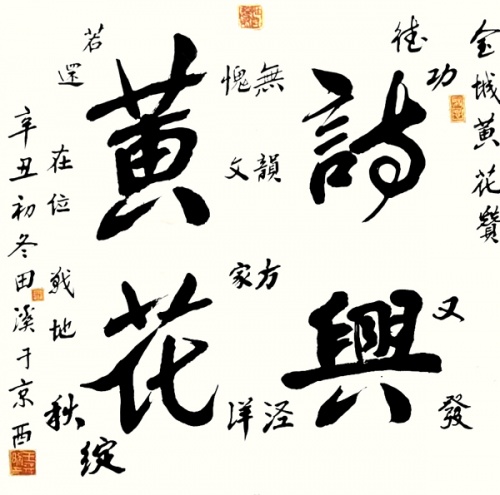 金城黄花贊
徒功又發
詩興
無韻方涇
愧文家洋
黄花
若還在位戰地秋綻
辛丑初冬田溪于京西